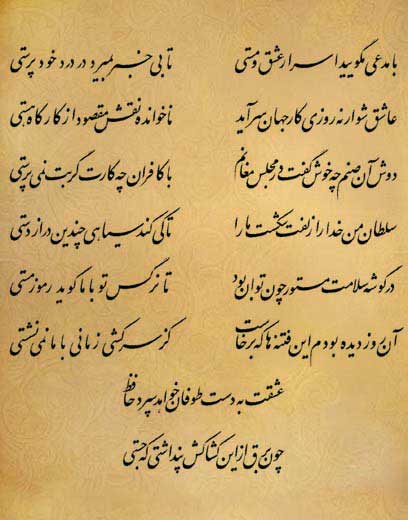 با مدعی مگویید اسرار عشق و مستی تا بی خبر بمیرد در درد خود پرستی
عاشق شو ار نه روزی کار جهان سر آید ناخوانده نقش مقصود از کارگاه هستی
دوش آن صنم چه خوش گفت در مجلس مغانم با کافران چه کارت گر بت نمی پرستی
سلطان من خدا را زلفت شکست ما را تا کی کند سیاهی چندین دراز دستی
در گوشه سلامت مستور چون توان بود تا نرگس تو با ما گوید رموز مستی
آن روز دیده بودم این فتنه ها که برخاست کز سرکشی زمانی با ما نمی نشستی
عشقت به دست طوفان خواهد سپرد حافظ
چون برق از این کشاکش پنداشتی که جستی